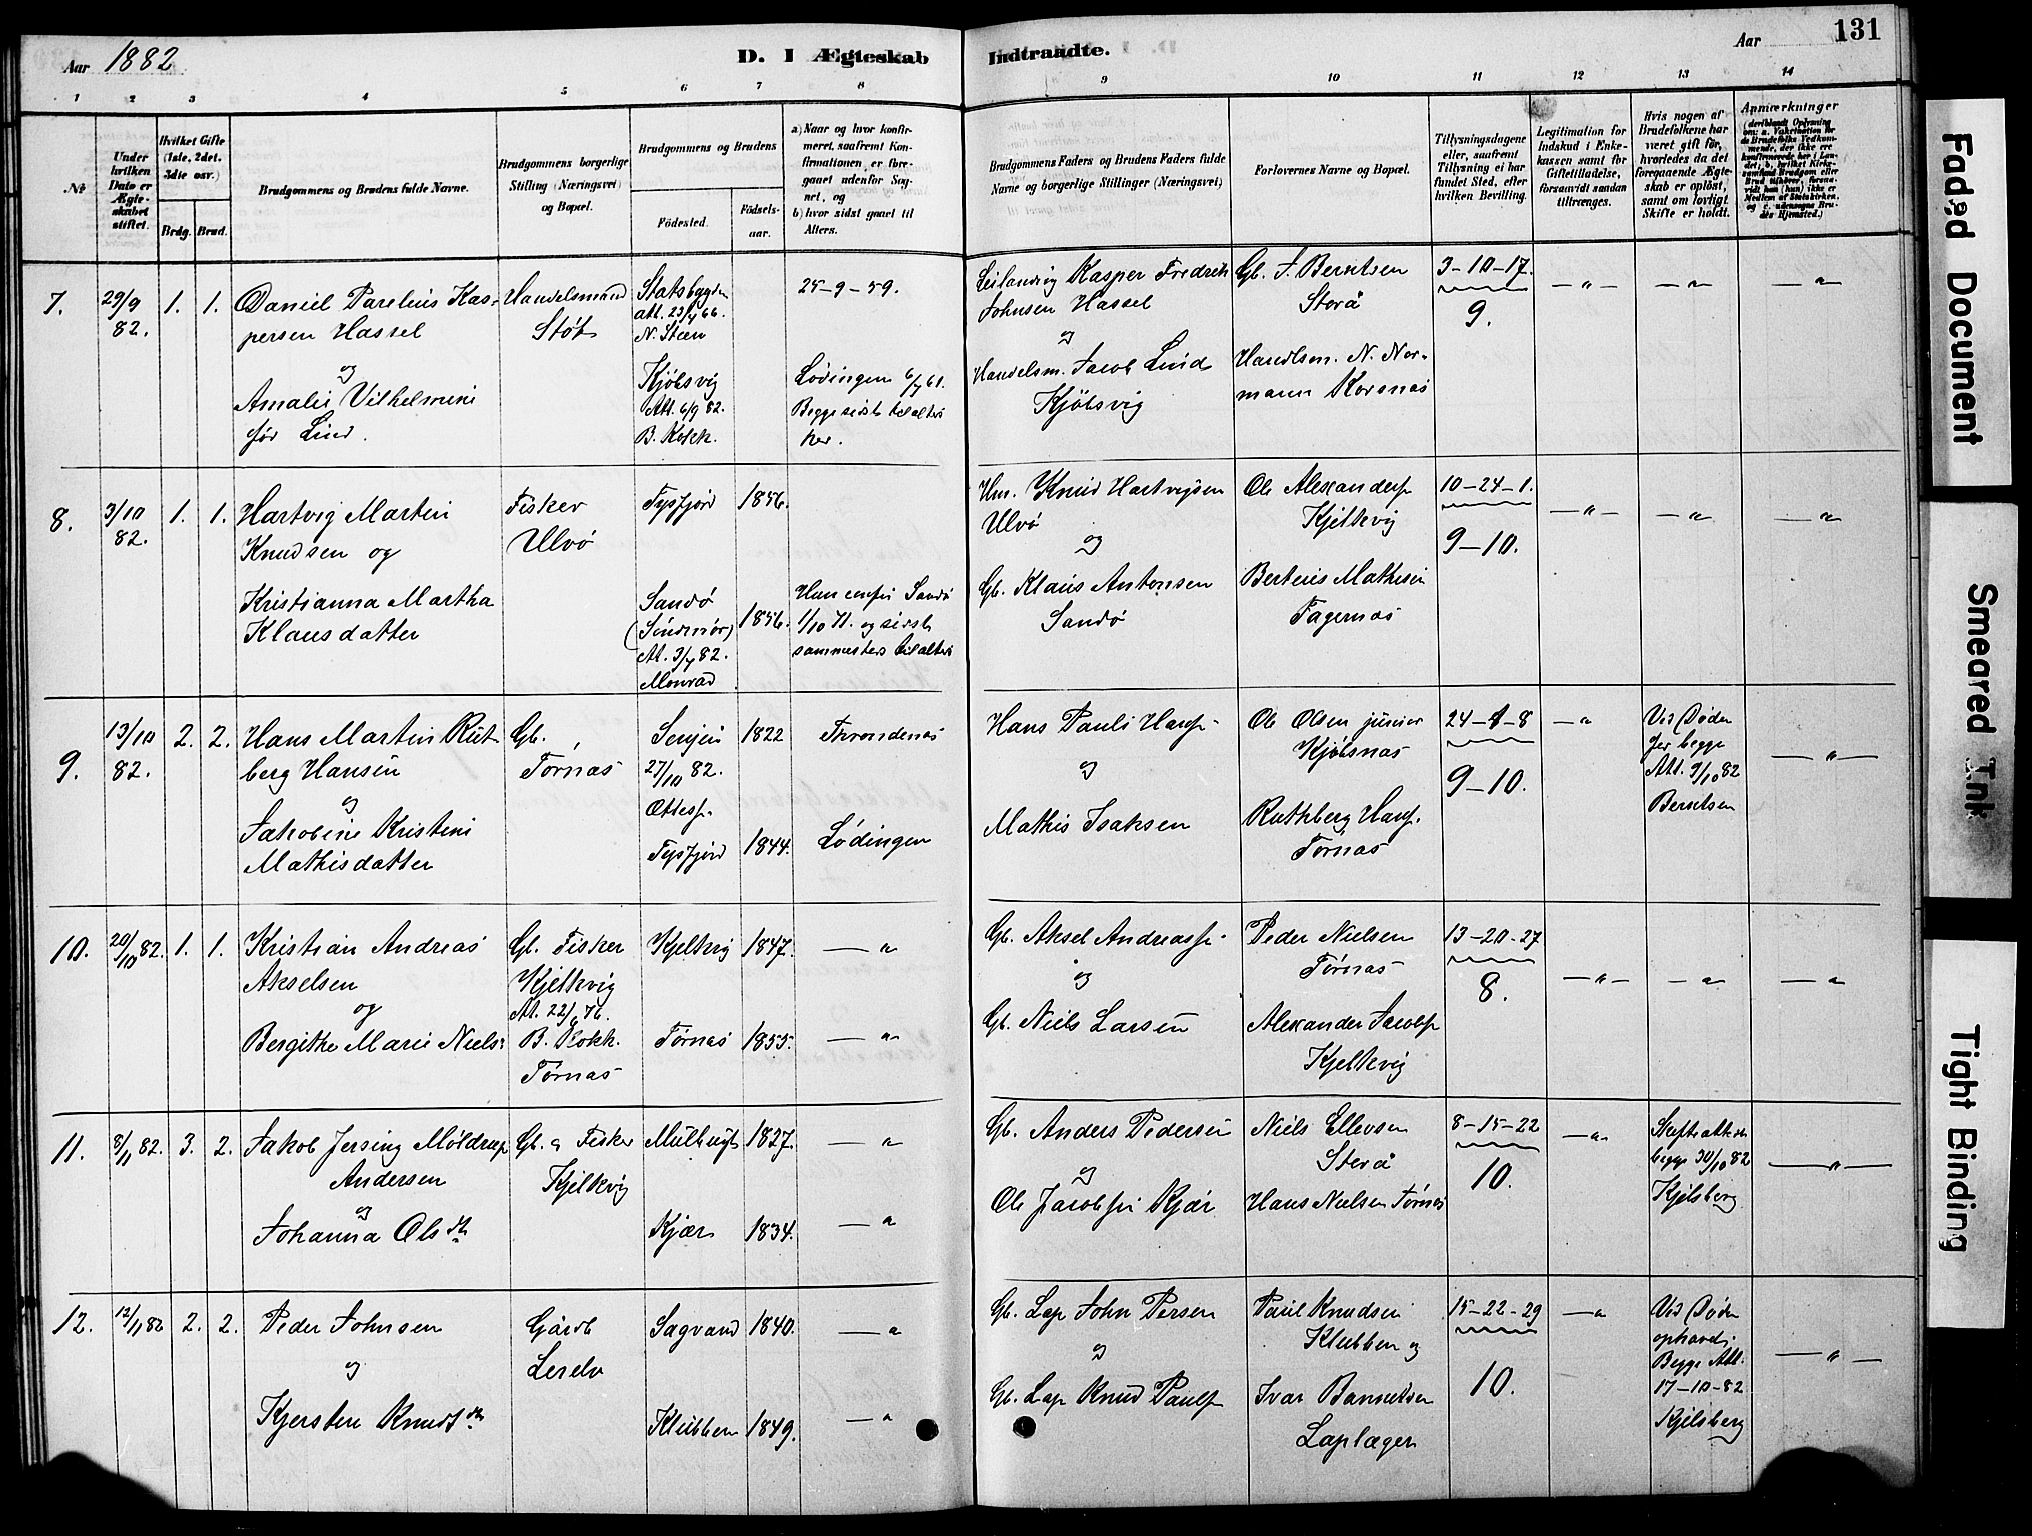 Aar 1882
D. I Ægteskab
Indtraadte.
Aar
131
1 2 3 4 5 6 7 8 9 10 11 12 13 14
№
Under hvilken Dato er Ægteskabet stiftet.
Hvilket Gifte (1ste, 2det, 3die osv.)
Brdg. Brud.
Brudgommens og Brudens fulde Navne.
Brudgommens borgerlige Stilling (Næringsvei) og Bopæl.
Brudgommens og Brudens
Fødested.
Fødsels-aar.
a) Naar og hvor konfirmeret, saafremt Konfirmationen er foregaaet udenfor Sognet, og
b) hvor sidst gaaet til Alters.
Brudgommens Faders og Brudens Faders fulde Navne og borgerlige Stillinger (Næringsvei)
Forlovernes Navne og Bopæl.
Tillysningsdagene eller, saafremt Tillysning ei har fundet Sted, efter hvilken Bevilling.
Legitimation for Indskud i Enkekassen samt for Giftetilladelse, forsaavidt saadan tiltrænges.
Hvis nogen af Brudefolkene har været gift før, hvorledes da det foregaaende Ægteskab er opløst, samt om lovligt Skifte er holdt.
Anmærkninger
7. 29/9 82. 1. 1.
Daniel Parelius Kas-
persen Hassel
og
Amalie Vilhelmine
før Lind.
Handelsmand
Støt
Statsbygden
att. 23/4 66.
N. Steen
Kjøbsvig
Att. 6/9 82.
B. Kokk.
25-9-59.
Lødingen 6/7 61.
Begge sidst til alters
her.
Kasper Fredrik
Johnsen Hassel
og
Handelsm. Jacob Lind
Kjøbsvig
Gb. J. Berntsen
Storå
Handlsm. N. Nor-
mann Korsnæs
3-10-17.
9.
8. 3/10 82. 1. 1.
Hartvig Martin
Knudsen og
Kristianna Martha
Klausdatter
Fisker
Ulvø
Tysfjord 1856.
Sandø
(Søndmør) 1856.
At. 3/7 82.
Monrad
Hun confir Sandø
1/10 71. og sidst
sammesteds til alters
Hm. Knud Hartvigsen
Ulvø
og
Gb. Klaus Antonsen
Sandø
Ole Alexanders.
Kjelkvig
Berteus Mathisen
Fagernæs
10-24-1.
9-10.
9. 13/10 82. 2. 2.
Hans Martin Rut-
berg Hansen
og
Jakobine Kristine
Mathisdatter
Gb.
Tornæs
Senjen 1822
27/10 82.
Ottess.
Tysfjord 1844.
Throndenæs
Lødingen
Hans Pauli Hans.
og
Mathis Isaksen
Ole Olsen junior
Kjøbsnæs
Ruthberg Hans.
Tornæs
24-1-8
9-10.
Ved Døden
før begge
Att. 9/10 82
Berntsen
10. 20/10 82. 1. 1.
Kristian Andreas
Akselsen
og
Bergithe Marie Niels.
Gb. Fisker
Kjelkvig
At. 22/6 76.
B. Kokk.
Tørnæs
Kjelkvig 1847.
Tørnæs 1855.
Gb. Aksel Andreass.
og
Gb. Niels Larsen
Peder Nielsen
Tørnæs
Alexander Jacobs.
Kjelkvig
13-20-27
8.
11. 8/11 82. 3. 2.
Jakob Jersing Møldrup
Andersen
og
Johanna Olsdtr.
Gb. & Fisker
Kjelkvig
1827.
Kjær 1834.
Gb. Anders Pedersen
og
Ole Jacobsen Kjær
Niels Ellevsen
Storå
Hans Nielsen Tørnæs
8-15-22
10.
Skifteattest
begge 30/10 82
Kjelsberg
12. 12/11 82 2. 2.
Peder Johnsen
og
Kjersten Knudsdtr.
Gårdb
Lerelv
Sagvand 1840.
Klubben 1849.
Gb. Lap John Persen
og
Gb. Lap Knud Pauls.
Paul Knudsen
Klubben og
Ivar Bannetsen
Laplæger
15-22-29
10.
Ved Døden
ophævet.
Begge Att.
17-10-82.
Kjelsberg
Faded Document
Smeared Ink
Tight Binding